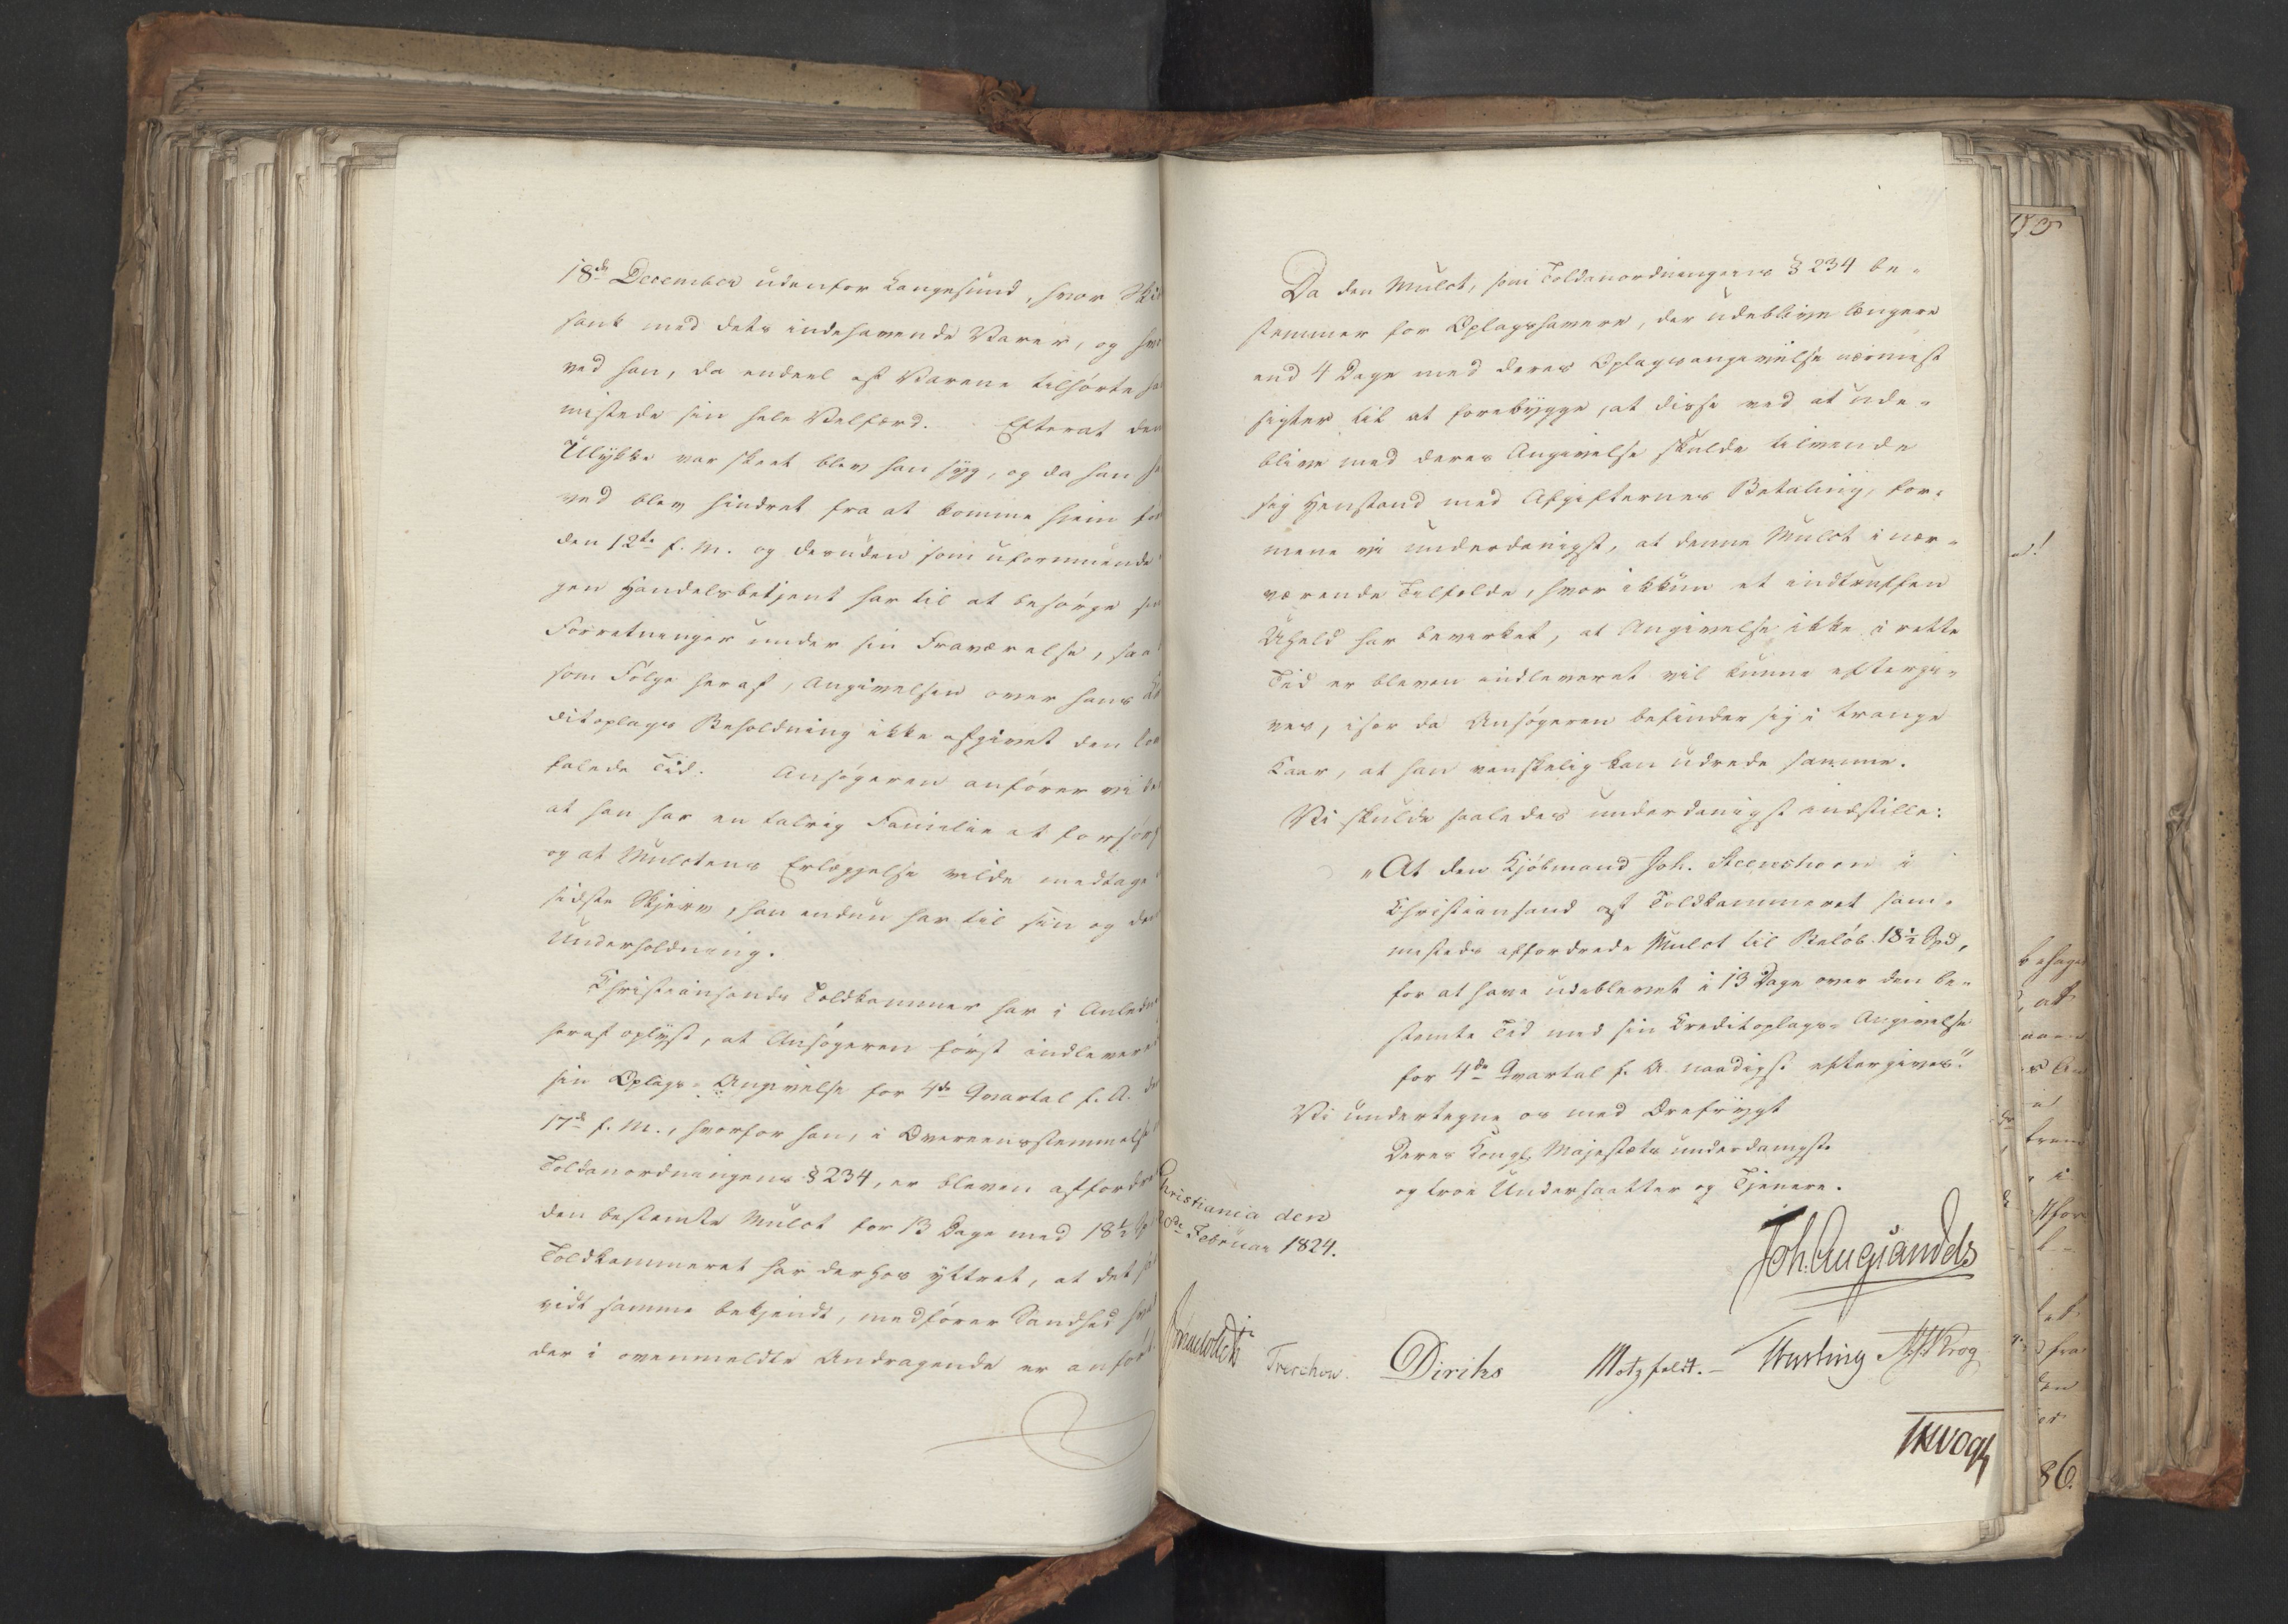 18de December udenfor Langesund, hvor Ski
sank med dets indehavende Varer, og hvor
ved han, da endeel af Varene tilhørte ha
mistede sin hele Velfærd. Efterat den
Ulykke var skeet blev han syg, og da han
ved blev hindret fra at komme hjem før
den 12te f. M. og desuden som uformuende
gen Handelsbetjent har til at besørge sin
Forretninger under sin Fraværelse, saa
som Følge heraf, Angivelsen over hans
ditoplags Beholdning ikke afgivet den
falede Tid. Ansøgeren anfører vi
at han har en talrig Familie at forsørg
og at Mulctens Erlæggelse vilde medtage
sidste Skjerv, han endnu har til sin og
Underholdning.
Christiansands Toldkammer har i Anledn
heraf oplyst, at Ansøgeren først indlevere
sin Oplags-Angivelse for 4de Qvartal f. A. den
17de f. M., hvorfor han, i Overeensstemmelse
Toldanordningens § 234, er bleven affordre
den bestemte Mulct for 13 Dage med 18½ Sp
Toldkammeret har derhos yttret, at det
vidt samme bekjendt, medfører Sandhed
der i ovenmeldte Andragende er anført.
Da den Mulct, som Toldanordningens § 234 be-
stemmer for Oplagshavere, der udeblive længere
end 4 Dage med deres Oplagsangivelse nærmest
sigter til at forebygge, at disse ved at ude-
blive med deres Angivelse skulde tilvende
sig Henstand med Afgifternes Betaling, for-
mene vi underdanigst, at denne Mulct i nær-
værende Tilfælde, hvor ikkun et indtruffen
Uheld har bevirket, at Angivelse ikke i rette
Tid er bleven indleveret vil kunne eftergi-
ves, især da Ansøgeren befinder sig i trange
Kaar, at han vanskelig kan udrede samme.
Vi skulde saaledes underdanigst indstille:
"At den Kjøbmand Joh. Steenshorn i
Christiansand af Toldkammeret sam-
mesteds affordrede Mulct til Beløb 18½ Spd,
for at have udeblevet i 13 Dage over den be-
stemte Tid med sin Creditoplags-Angivelse
for 4de Qvartal f. A. naadigst eftergives."
Vi undertegne os med Ærefrygt
Deres Kongl. Majestæts underdanigste
og troe Undersaatter og Tjenere.
Christiania den
Februar 1824.
Joh. Aug Sandels
Treschow. Diriks Motzfeldt.- Krog
Vogt
86.